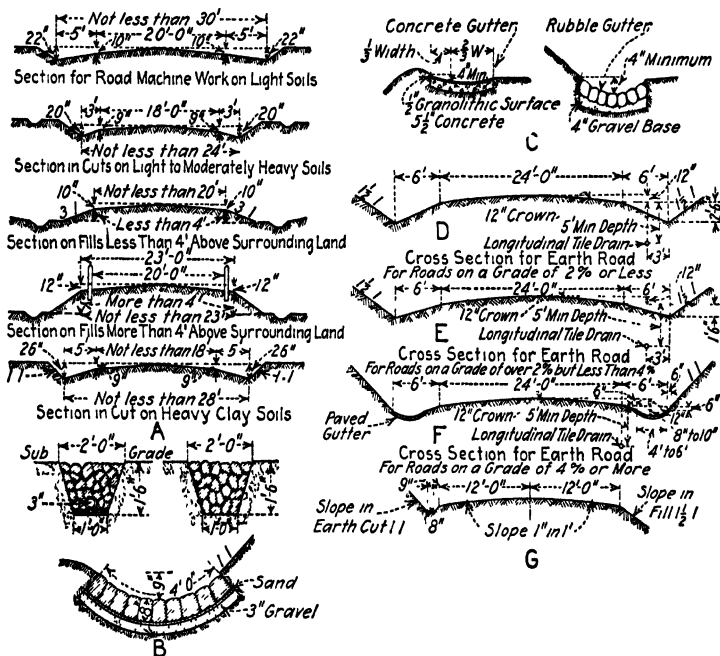 Not less than 30'
5' 20'-0" 5'
22" 10" 10" 22"
Section for Road Machine Work on Light Soils
20" 3' 18'-0" 3' 20"
9" 9"
Not less than 24'
Section in Cuts on Light to Moderately Heavy Soils
10" Not less than 20' 10"
3 Less than 4' 3
Section on Fills Less Than 4' Above Surrounding Land
23'-0"
20'-0"
12" 12"
More than 4'
Not less than 23'
Section on Fills More Than 4' Above Surrounding Land
26" 5 Not less than 18 5 26"
1 1 9" 9" 1.1
Not less than 28'
Section in Cut on Heavy Clay Soils
A
Sub 2'-0" Grade 2'-0"
3" 1'-6" 1'-6"
1'-0" 1'-0"
9"
4' 0"
8"
Sand
3" Gravel
B
Concrete Gutter
1/3 Width 2/3 W
4" Min
1/2" Granolithic Surface
5 1/2" Concrete
Rubble Gutter
4" Minimum
4" Gravel Base
C
1 1/2 6' 24'-0" 6' 12"
D 12" Crown 2'6"
5' Min Depth
Longitudinal Tile Drain
3'
Cross Section for Earth Road
For Roads on a Grade of 2% or Less
6' 24'-0" 6' 12"
E 12" Crown 5' Min Depth
Longitudinal Tile Drain
3'
Cross Section for Earth Road
For Roads on a Grade of over 2% but Less Than 4%
6' 24'-0" 6' 6"
6" 6"
Paved Gutter
F 12" Crown 5' Min Depth 12"
Longitudinal Tile Drain 8" to 10"
4' to 6'
Cross Section for Earth Road
For Roads on a Grade of 4% or More
9" 12'-0" 12'-0"
Slope in Earth Cut 1 1
8"
Slope 1" in 1'
Slope in Fill 1 1/2 1
G